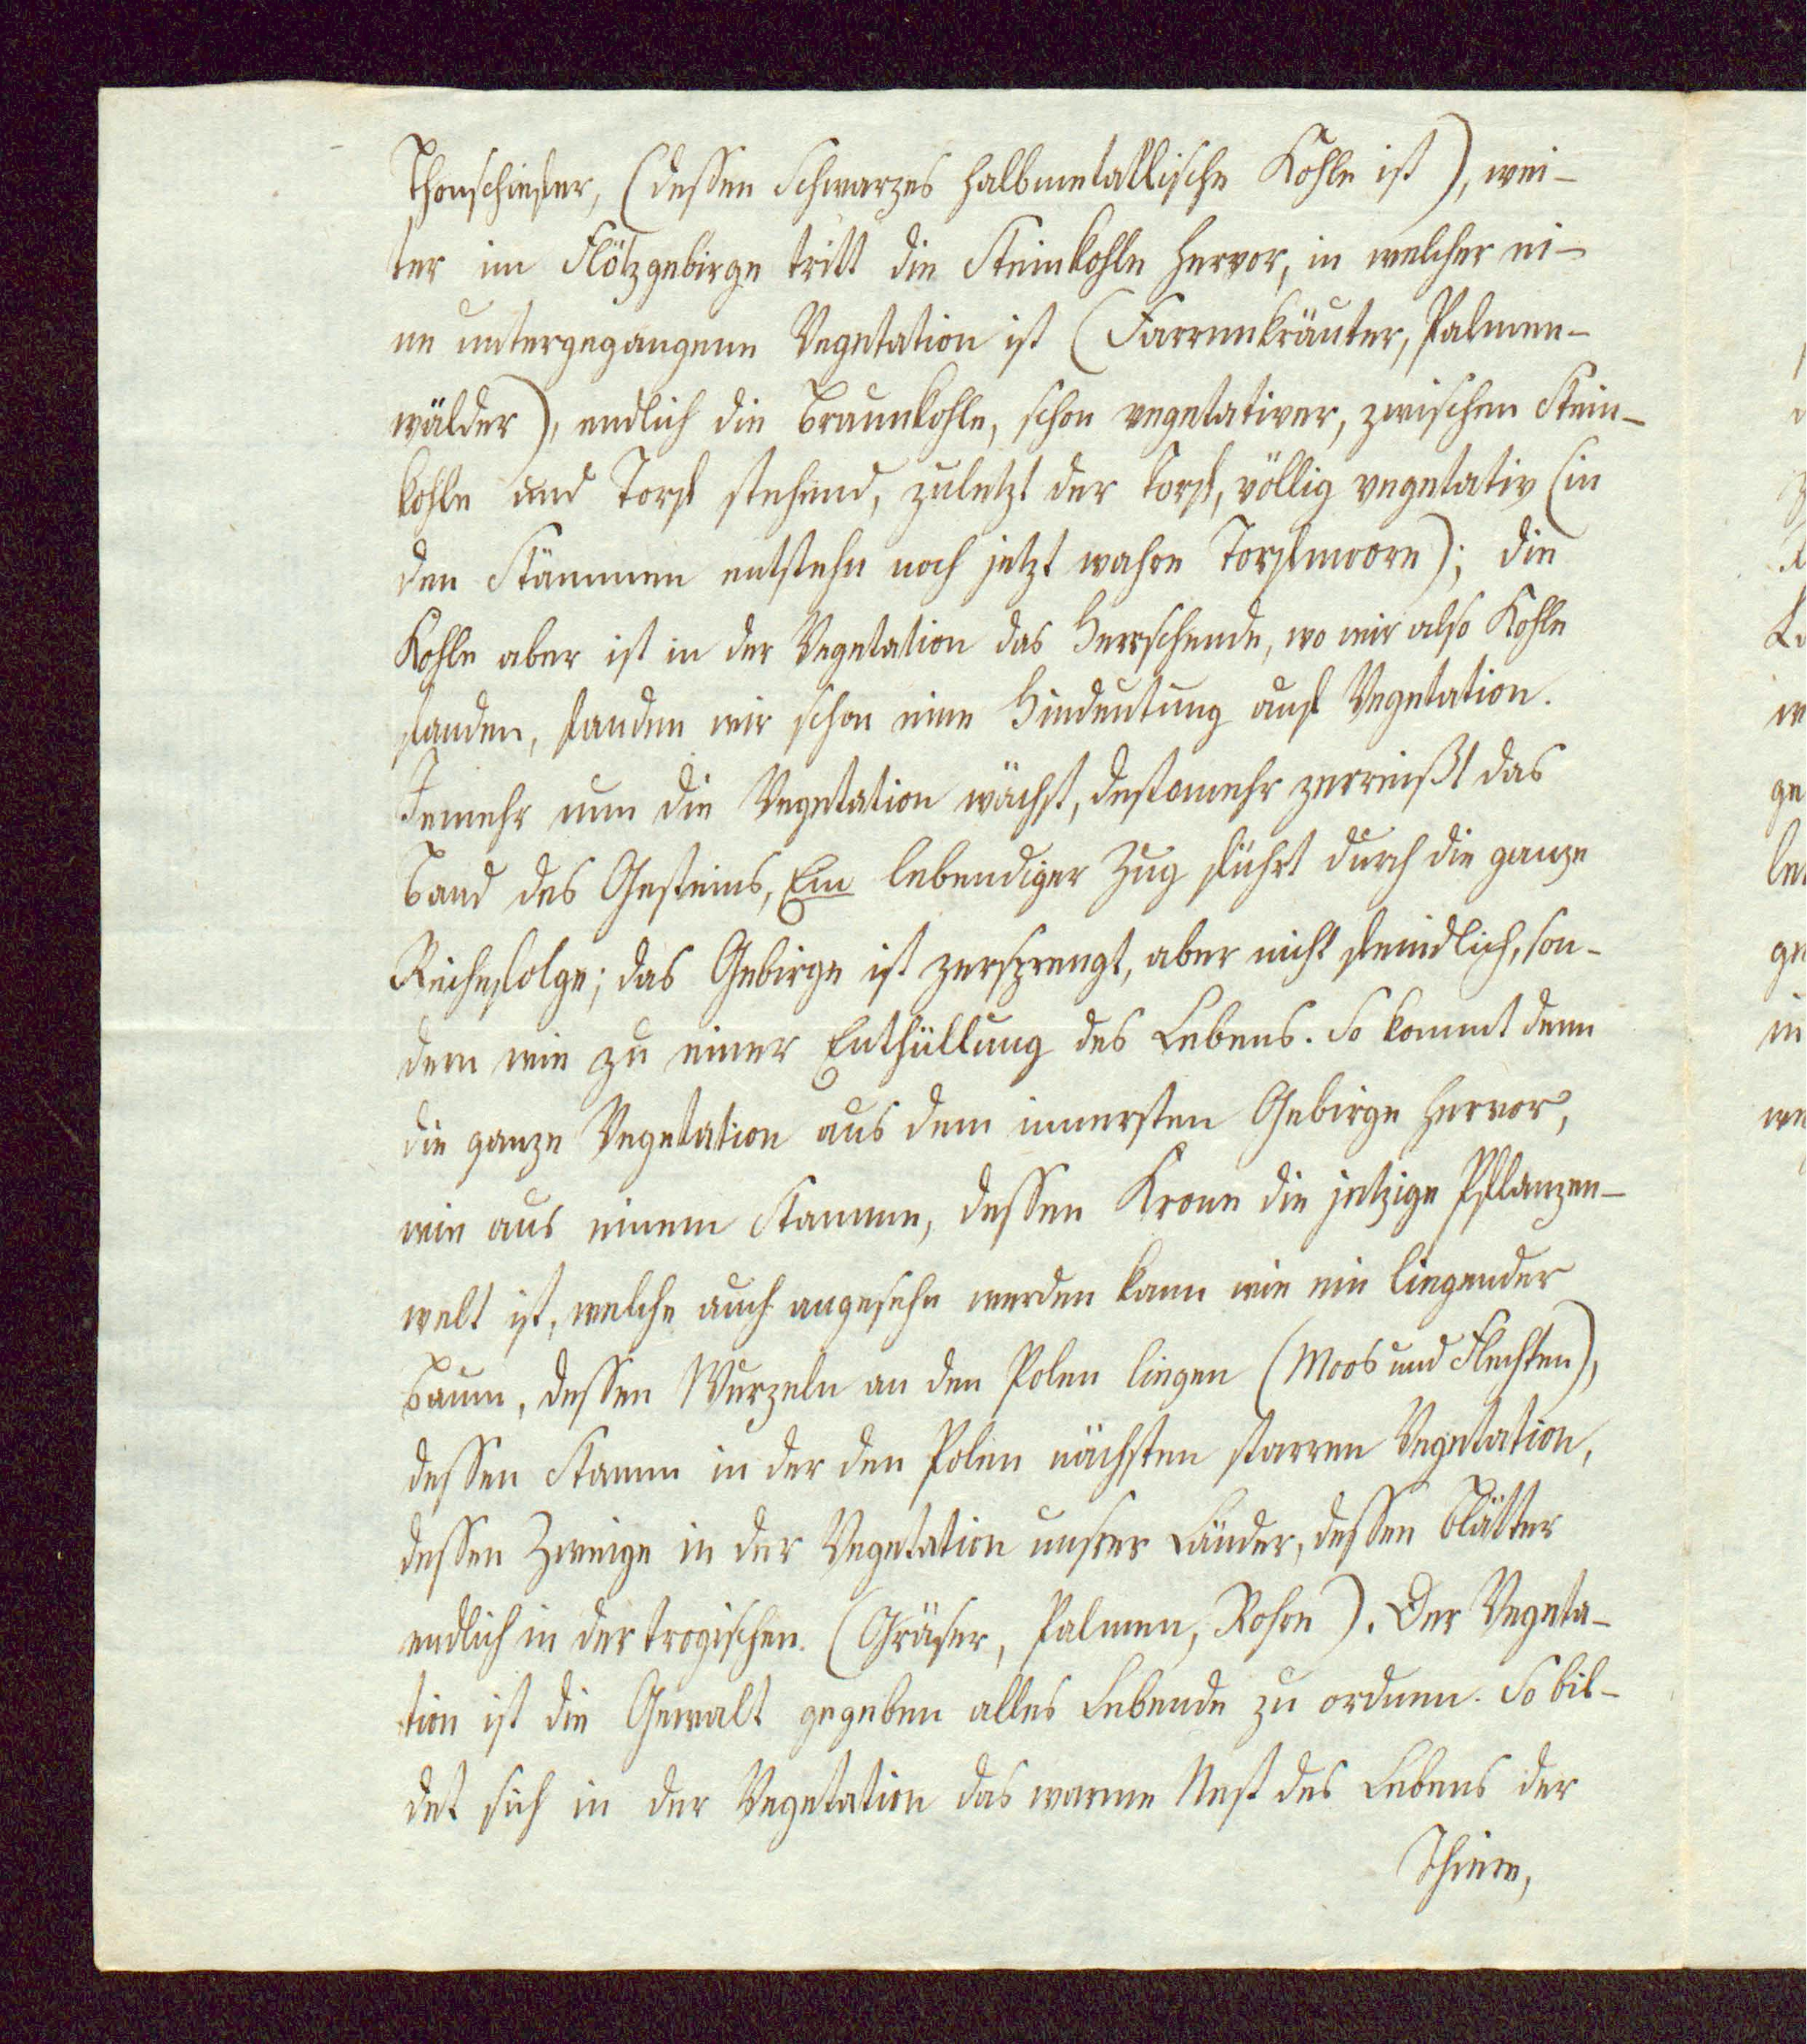 Thonschiefer, (dessen Schwarzes halbmetallische Kohle ist), wei-
ter im Flötzgebirge tritt die Steinkohle hervor, in welcher ei-
ne untergegangene Vegetation ist (Farrenkräuter, Palmen-
wälder), endlich die Braunkohle, schon vegetativer, zwischen Stein-
kohle und Torf stehend, zuletzt der Torf, völlig vegetativ (in
den Stämmen entstehn noch jetzt wahre Torfmoore); die
Kohle aber ist in der Vegetation das Herrschende, wo wir also Kohle
fanden, fanden wir schon eine Hindeutung auf Vegetation.
Jemehr nun die Vegetation wächst, destomehr zerreißt das
Band des Gesteins, Ein lebendiger Zug führt durch die ganze
Reihefolge; das Gebirge ist zersprengt, aber nicht feindlich, son-
dern wie zu einer Enthüllung des Lebens. So kommt denn
die ganze Vegetation aus dem innersten Gebirge hervor,
wie aus einem Stamme, dessen Krone die jetzige Pflanzen-
welt ist, welche auch angesehn werden kann wie ein liegender
Baum, dessen Wurzeln an den Polen liegen (Moos und Flechten),
dessen Stamm in der den Polen nächsten starren Vegetation,
dessen Zweige in der Vegetation unsrer Länder, dessen Blätter
endlich in der tropischen. (Gräser, Palmen, Rohre). Der Vegeta-
tion ist die Gewalt gegeben alles Lebende zu ordnen. So bil-
det sich in der Vegetation das warme Nest des Lebens der
Thiere,